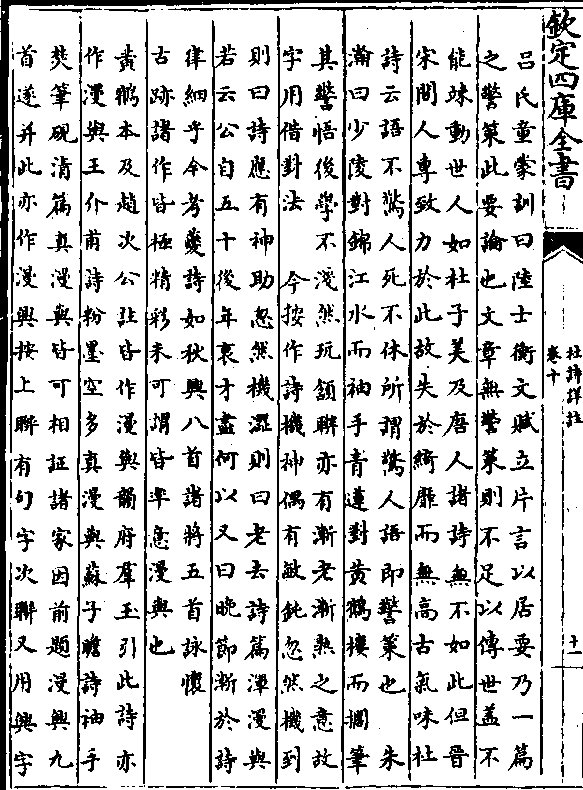 欽定四庫全書
杜詩詳註
卷十
十一
呂氏童蒙訓曰陸士衡文賦立片言以居要乃一篇
之警策此要論也文章無警策則不足以傳世蓋不
能竦動世人如杜子美及唐人諸詩無不如此但晉
宋間人專致力於此故失於綺靡而無高古氣味杜
詩云語不驚人死不休所謂驚人語即警策也　朱
瀚曰少陵對錦江水而袖手青蓮對黃鶴樓而擱筆
其警悟後學不淺然玩頷聯亦有漸老漸熟之意故
字用借對法　今按作詩機神偶有敏鈍忽然機到
則曰詩應有神助忽然機澀則曰老去詩篇渾漫與
若云公自五十後年衰才盡何以又曰晚節漸於詩
律細乎今考夔詩如秋興八首諸將五首詠懷
古跡諸作皆極精彩未可謂皆率意漫與也
黃鶴本及趙次公註皆作漫與韻府羣玉引此詩亦
作漫與王介甫詩粉墨空多真漫與蘇子瞻詩袖手
焚筆硯清篇真漫與皆可相証諸家因前題漫興九
首遂并此亦作漫興按上聯有句字次聯又用興字